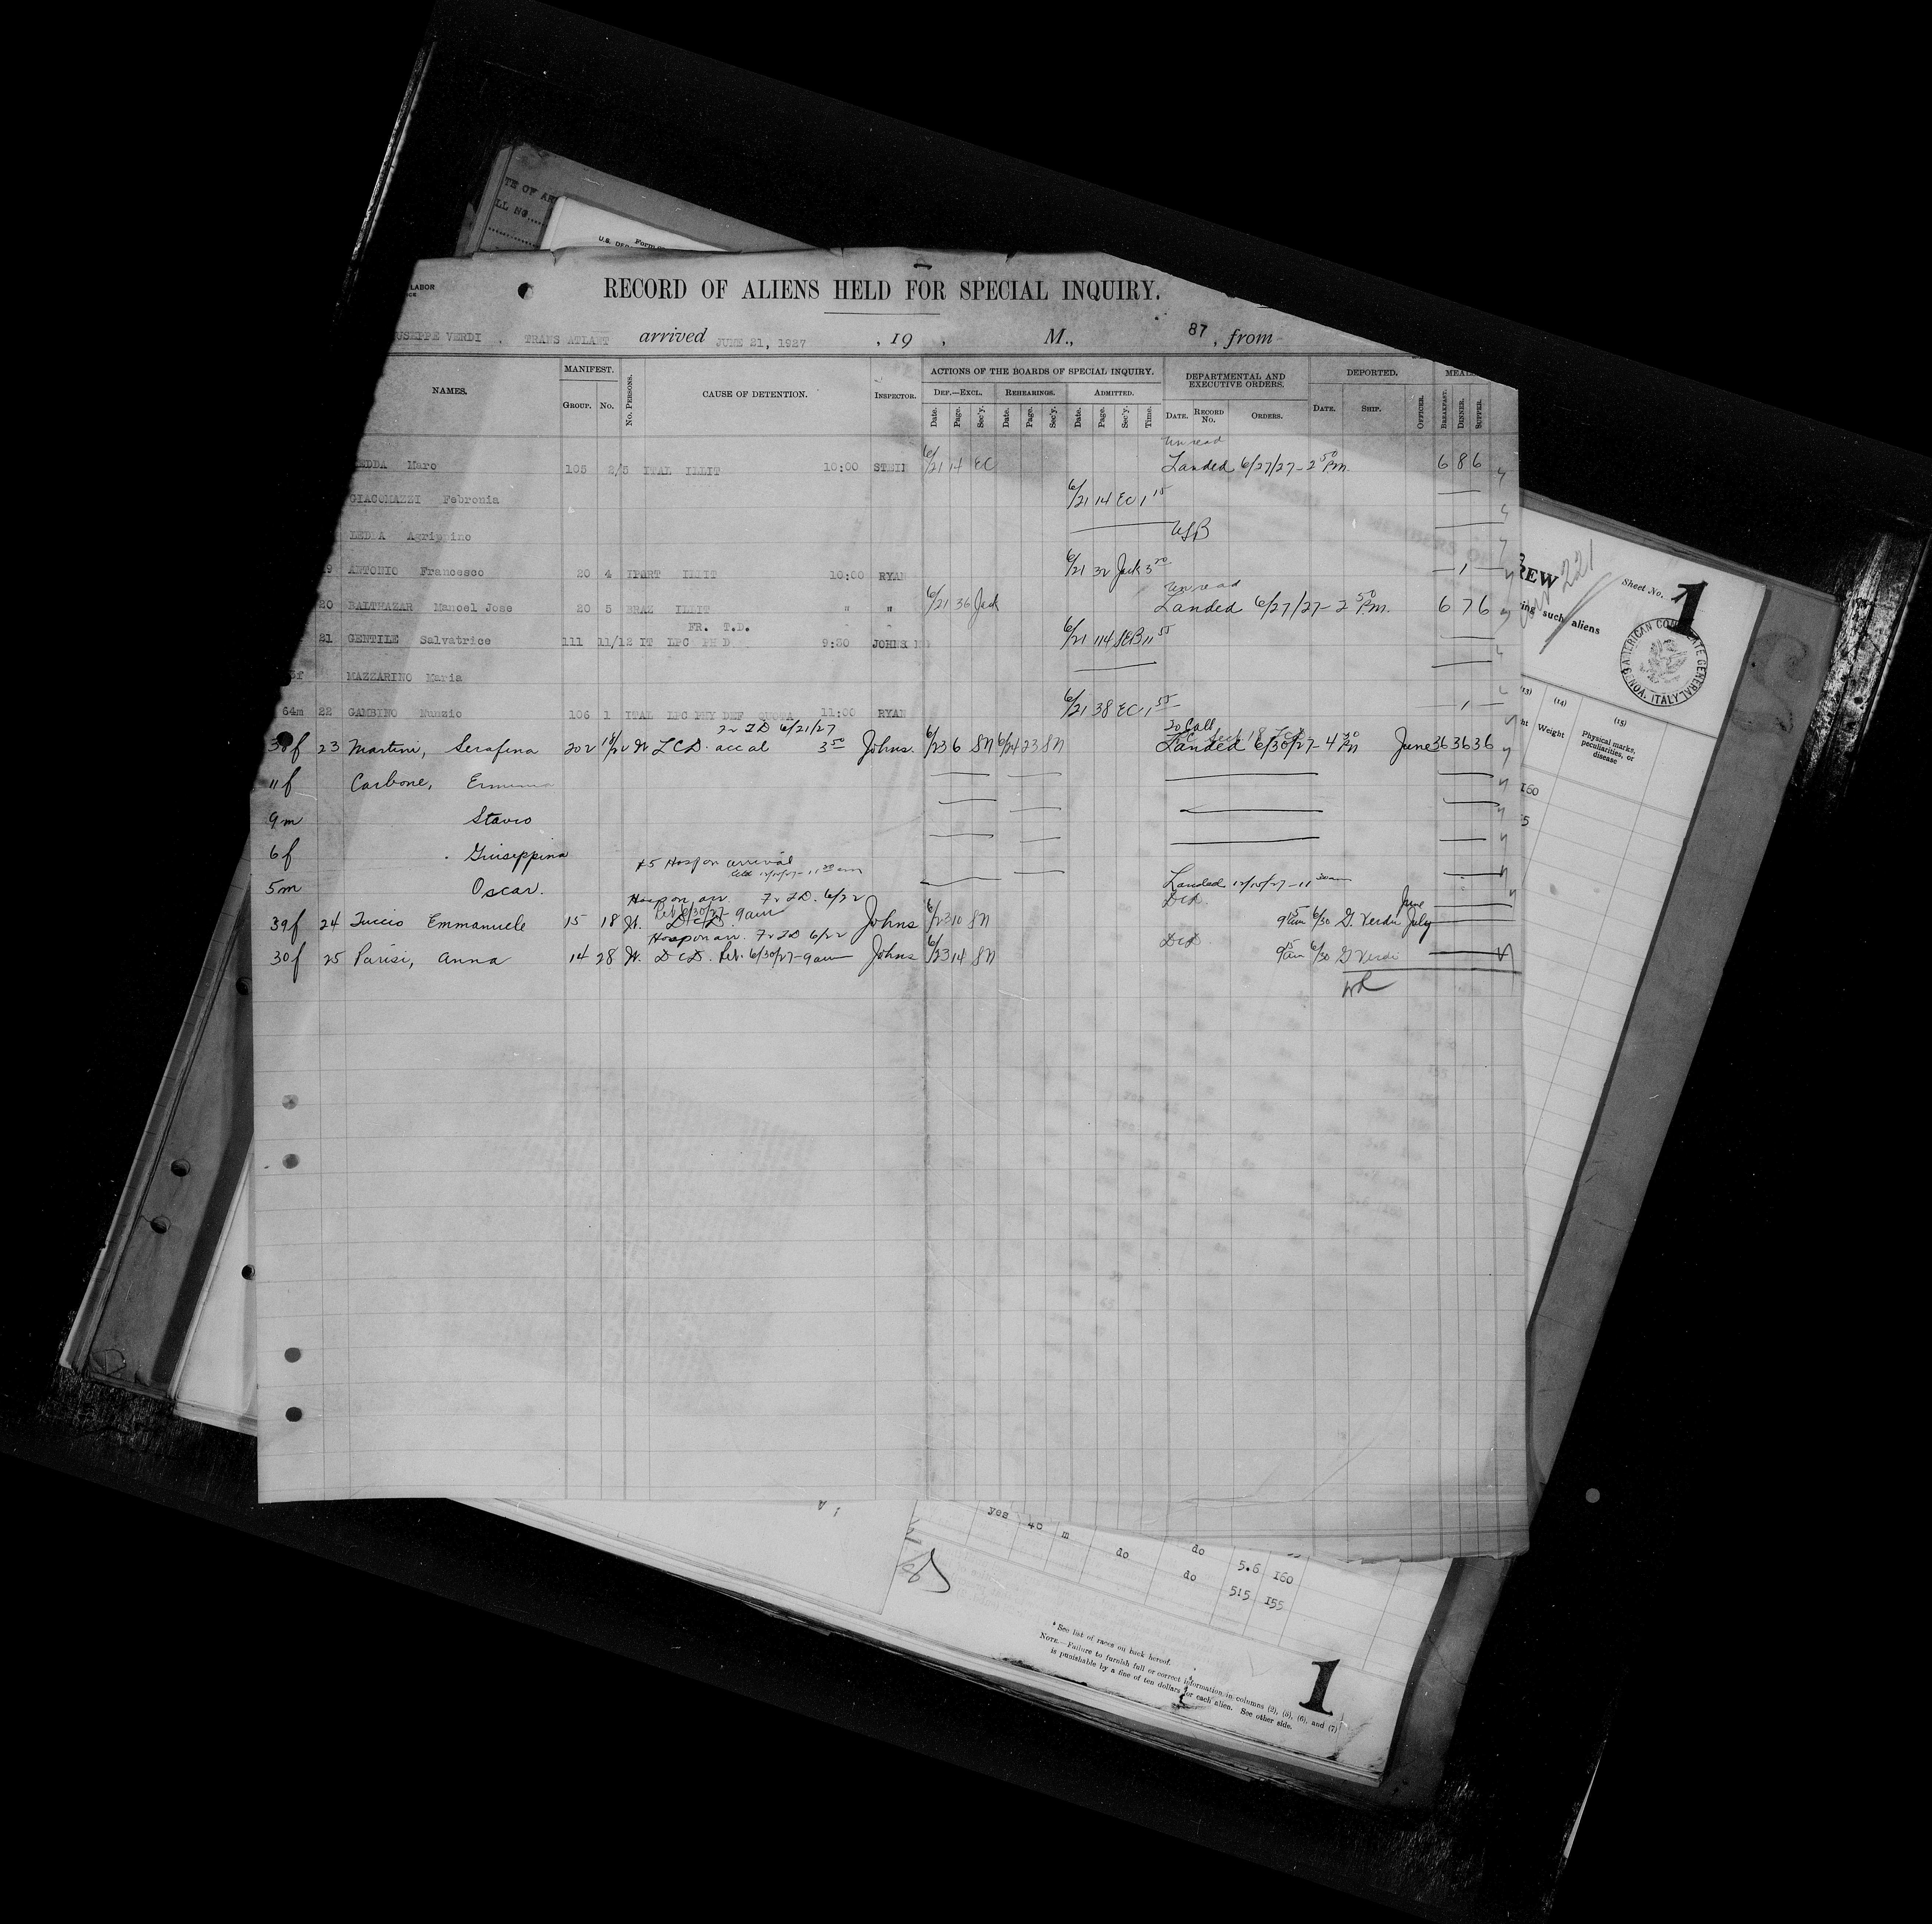 TE OF AR
LL NO.
Form
U.S. DEP
LABOR
RECORD OF ALIENS HELD FOR SPECIAL INQUIRY.
USEPPE VERDI , TRANS ATLANT arrived JUNE 21, 1927 , 19 , M., 87 , from
NAMES. MANIFEST. GROUP. No. No. PERSONS. CAUSE OF DETENTION. INSPECTOR. ACTIONS OF THE BOARDS OF SPECIAL INQUIRY. DEPARTMENTAL AND EXECUTIVE ORDERS. DEPORTED. MEAL
DEF.—EXCL. REHEARINGS. ADMITTED.
Date. Page. Sec'y. Date. Page. Sec'y. Date. Page. Sec'y. Time. DATE. RECORD No. ORDERS. DATE. SHIP. OFFICER. BREAKFAST. DINNER. SUPPER.
EDDA Maro 105 2/5 ITAL ILLIT 10:00 STEIN 6/21 14 EC Landed 6/27/27 - 2 50 Pm. 6 8 6
GIACOMAZZI Febronia 6/21 14 EC 1 15
LEDDA Agrippino
9 ANTONIO Francesco 20 4 IPORT ILLIT 10:00 RYAN 6/21 32 Jack 3 20 1
20 BALTHAZAR Manoel Jose 20 5 BRAZ ILLIT " " 6/21 36 Jack Landed 6/27/27 - 2 50 Pm. 6 7 6
FR. T.D.
21 GENTILE Salvatrice 111 11/12 IT LPC PH D 9:30 JOHNS 6/21 114 SEB 11 55
3f MAZZARINO Maria
64m 22 GAMBINO Nunzio 106 1 ITAL LPC PHY DEF QUOTA 11:00 RYAN 6/21 38 EC 1 55 1
38f 23 Martini, Serafina 202 LCD. acc al 3 50 Johns. 6/23 6 SN 6/24 23 SN Landed 6/30/27 - 4 30 Pm June 36 36 36
11f Carbone,
9m Stavro
6f Giuseppina
#5 Hosp on arrival
5m Oscar. Landed 12/15/27 - 11 30 am
Hosp on arr. 6/22
39f 24 Tuccio Emmanuele 15 18 It. DCD. Johns 6/23 10 SN 9 15 am 6/30 G. Verdi July
June
Hosp on arr. 6/22
30f 25 Parisi, Anna 14 28 It. DCD. Rel. 6/30/27 - 9 am Johns 6/23 14 SN DCD 9 15 am 6/30 G Verdi
REW 221 Sheet No. 1
ing such aliens
AMERICAN CONSULATE GENERAL GENOA, ITALY
(13) (14) (15)
ht Weight Physical marks, peculiarities, or disease
160
5
yes 40 m do do 5.6 160
do 515 155
* See list of races on back hereof.
NOTE.—Failure to furnish full or correct information in columns (2), (5), (6), and (7)
is punishable by a fine of ten dollars for each alien. See other side.
1